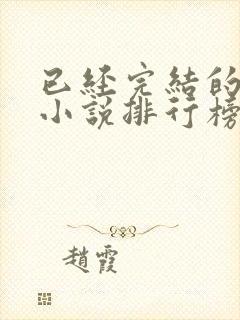 已經完結的
小說排行榜
趙霞